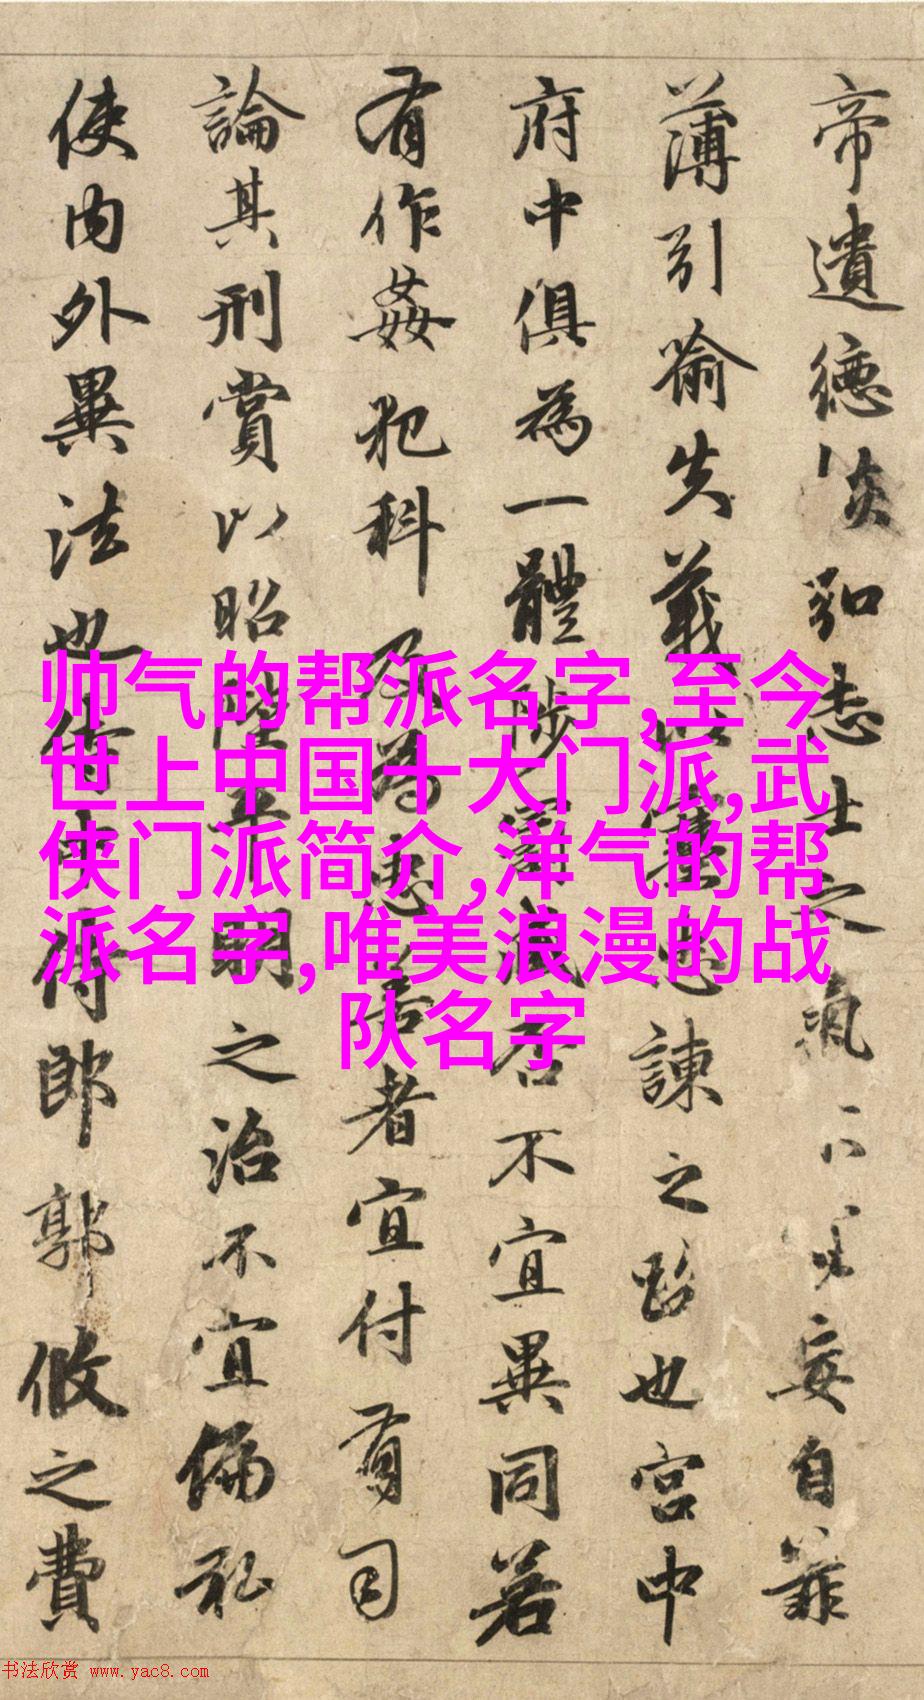 帝遺德恢弘志士之氣不宜妄自菲
薄引喻失義以塞忠諫之路也宮中
府中俱為一體陟罰臧否不宜異同若
有作姦犯科及為忠善者宜付有司
論其刑賞以昭陛平明之治不宜偏私
使內外異法也侍中侍郎郭攸之費
帅气的帮派名字,至今
世上中国十大门派,武
侠门派简介,洋气的帮
派名字,唯美浪漫的战
队名字
书法欣赏 www.yac8.com